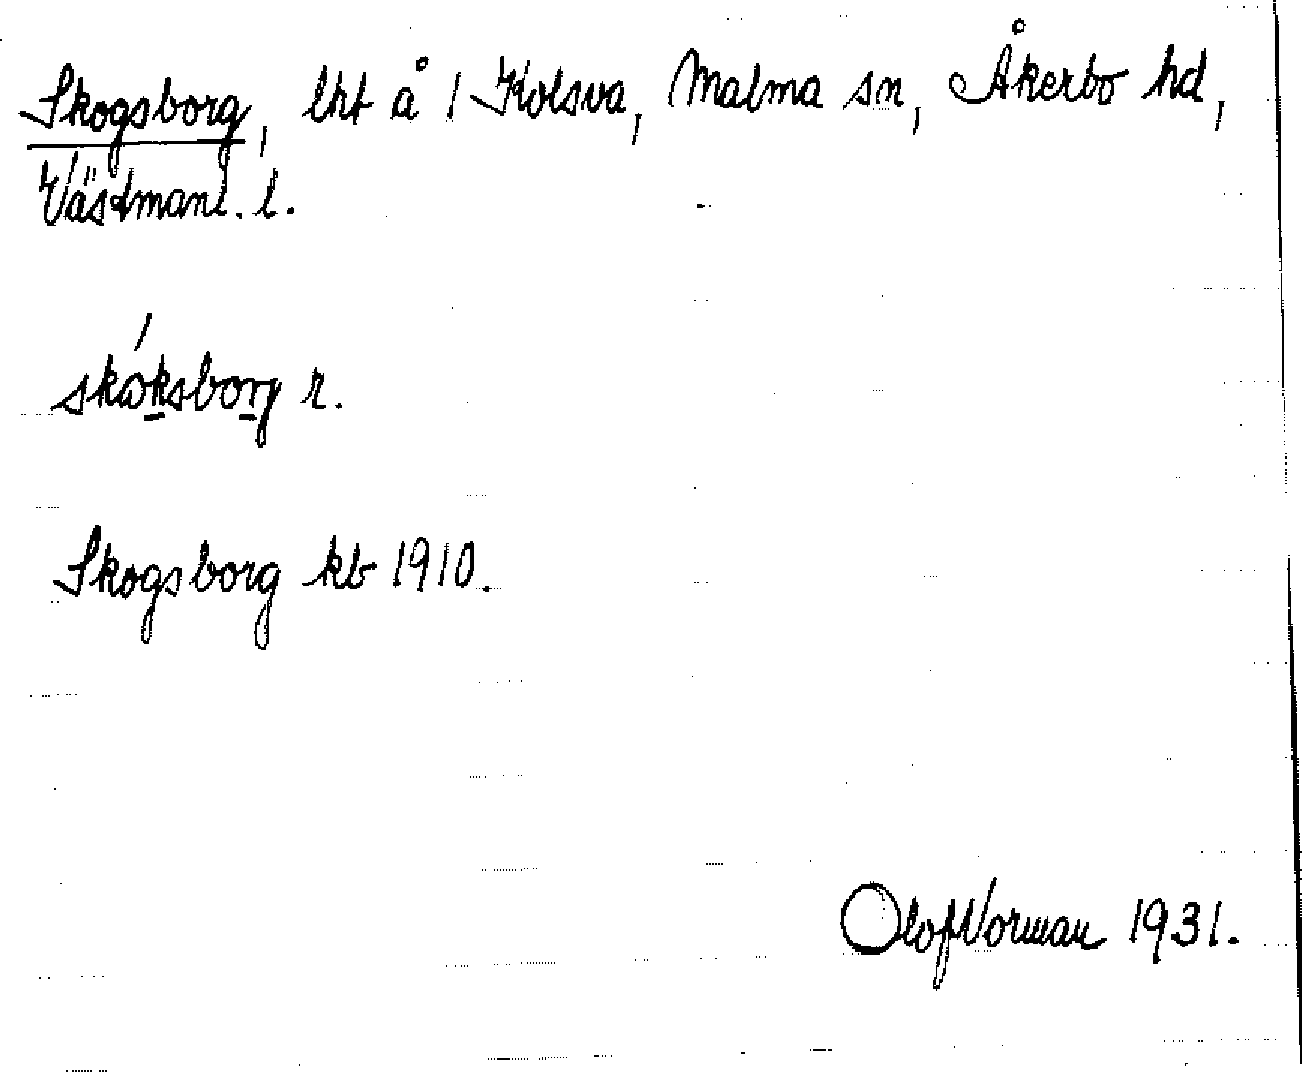 Skogsborg, lht å 1 Kolsva, Malma sn, Åkerbo hd,
Västmanl. l.
skóksborg r.
Skogsborg kb 1910.
Olof Norman 1931.